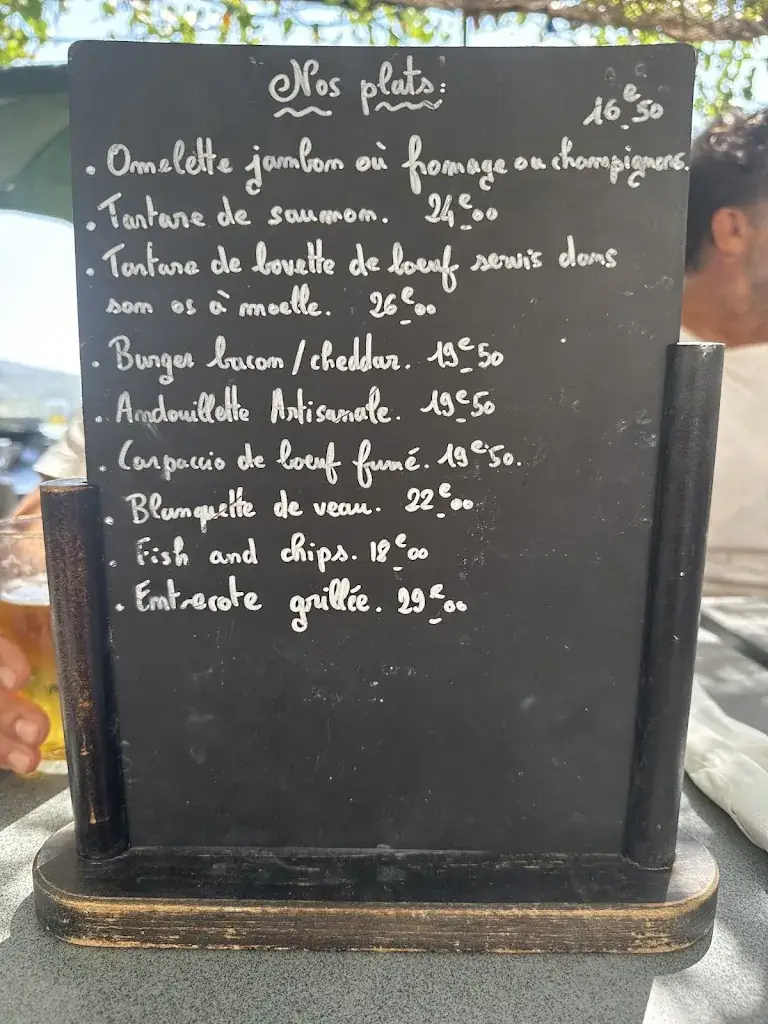 Nos plats:
16€50
. Omelette jambon où fromage ou champignons.
. Tartare de saumon. 24€00
. Tartare de bavette de boeuf servis dans
son os à moelle. 26€00
. Burger bacon/cheddar. 19€50
. Andouillette Artisanale. 19€50
. Carpaccio de boeuf fumé. 19€50.
. Blanquette de veau. 22€00
. Fish and chips. 18€00
. Entrecote grillée. 29€00